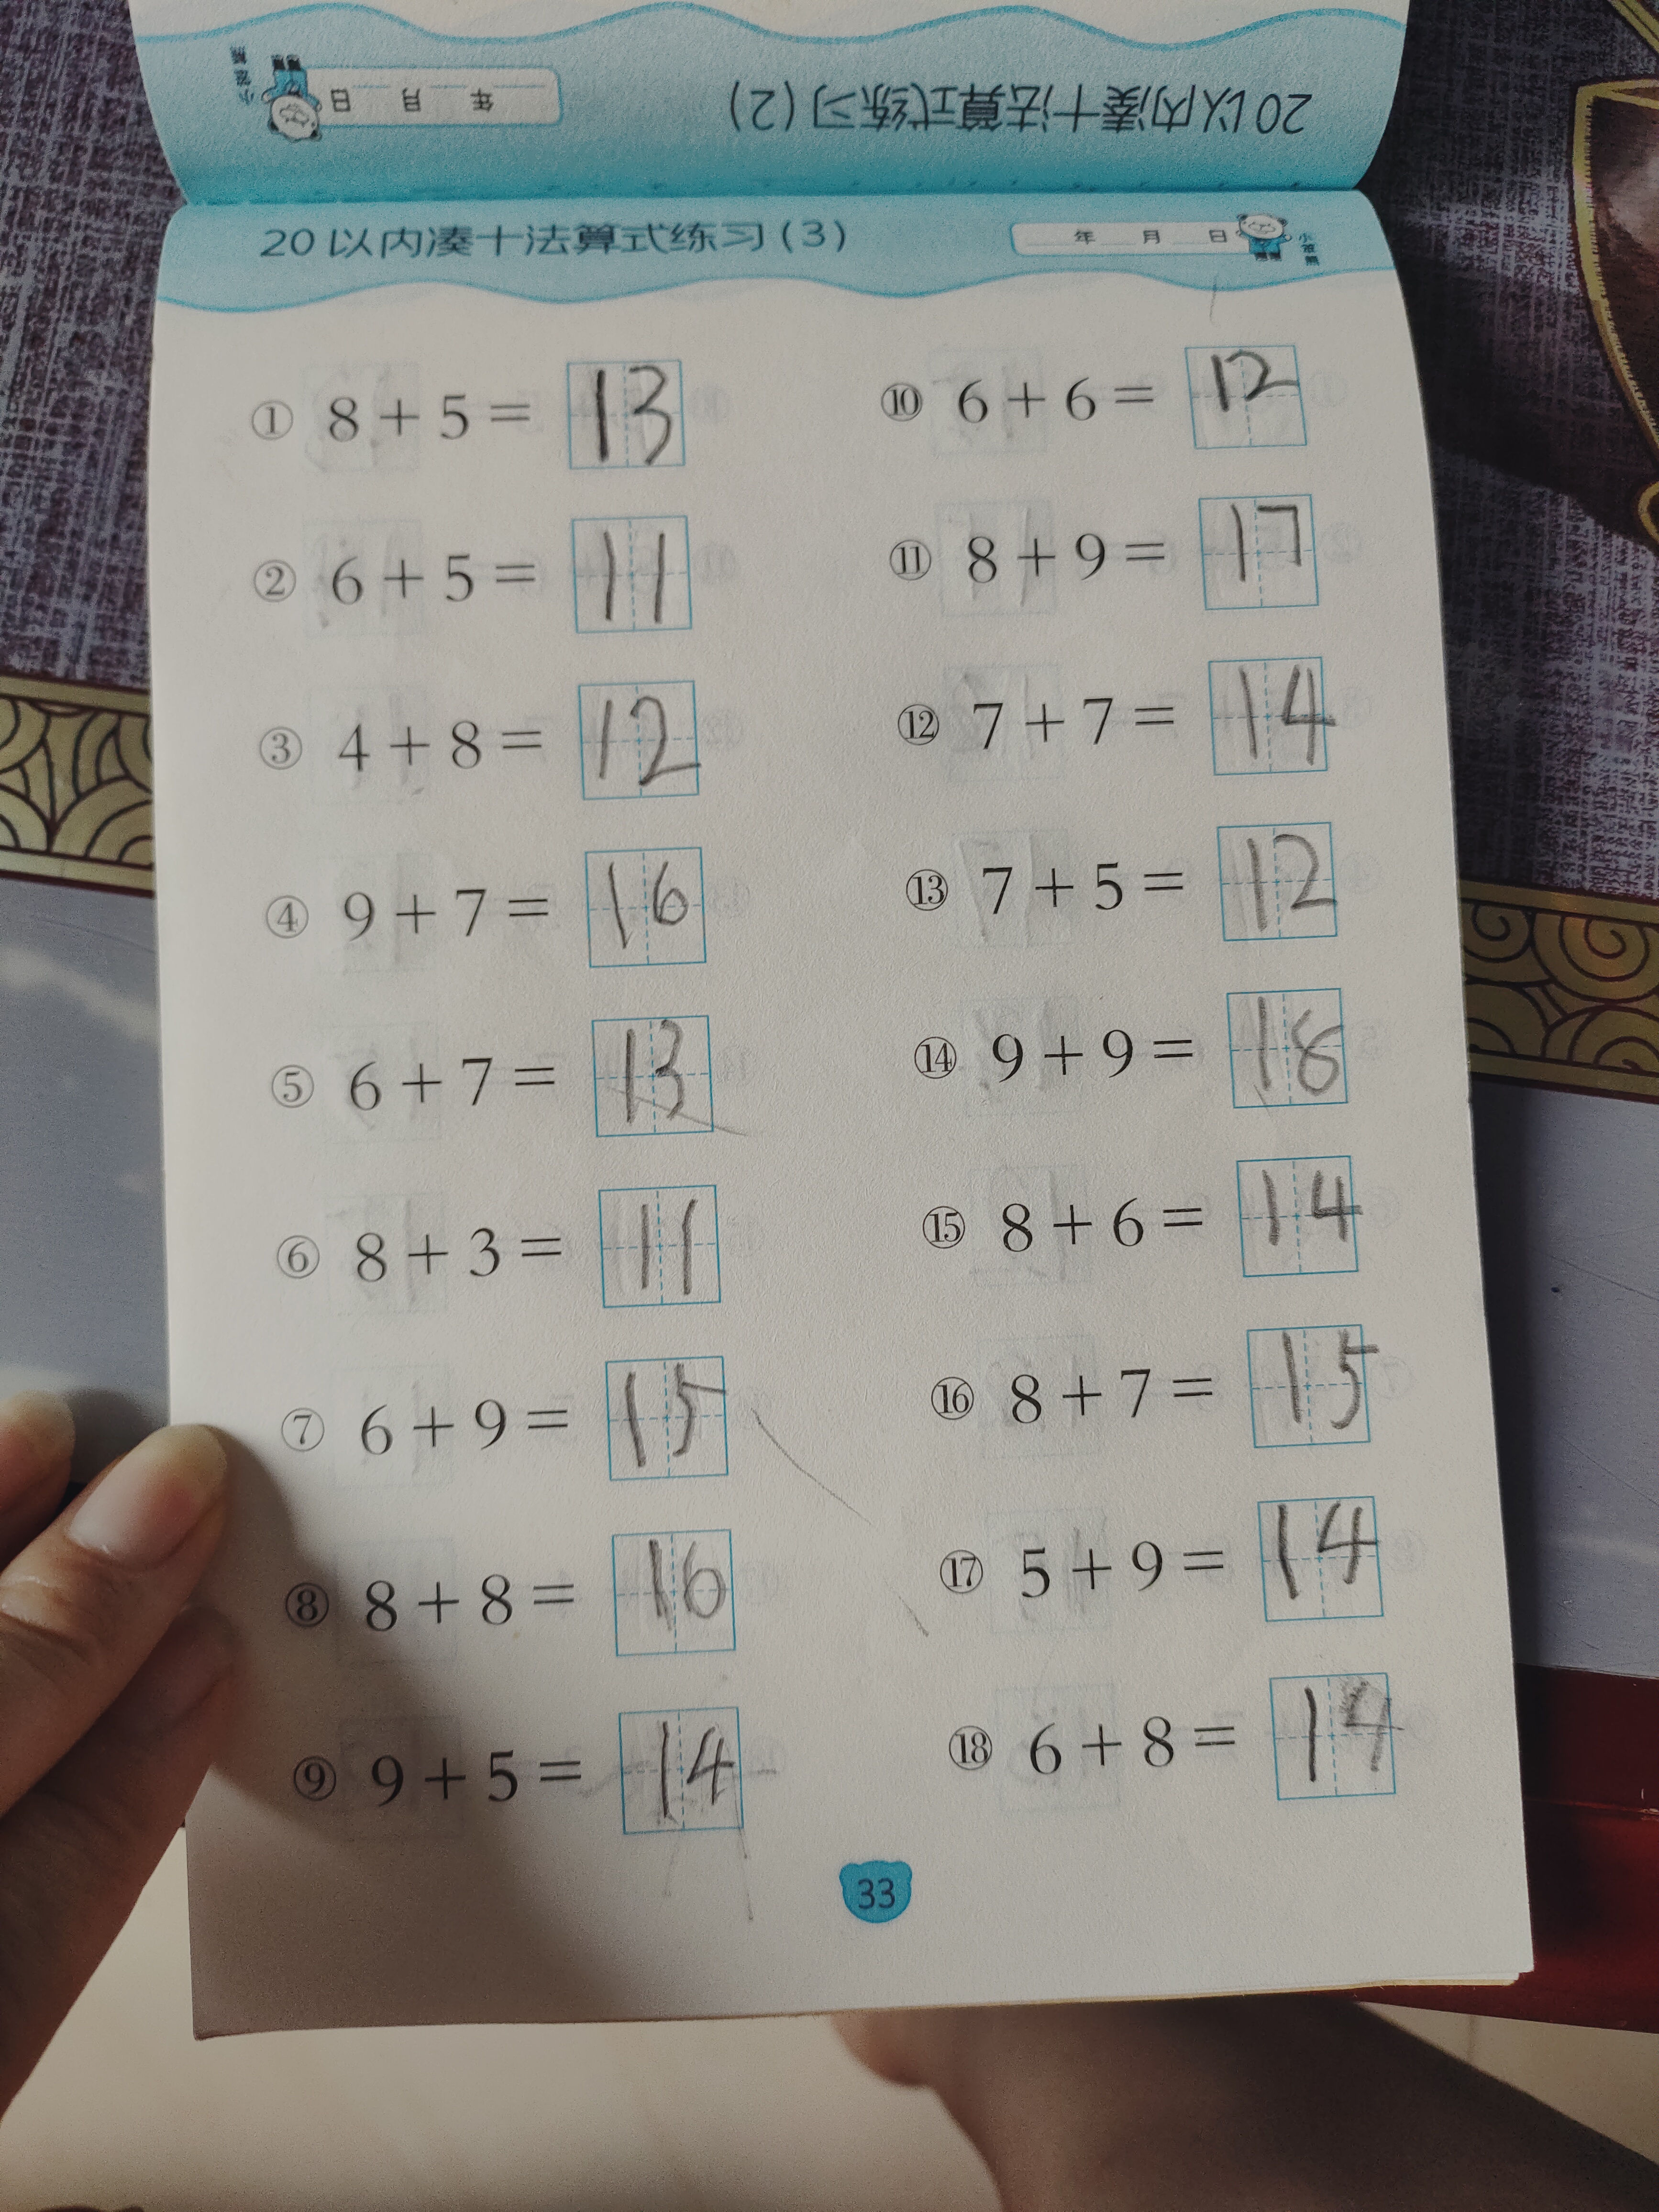 20以内凑十法算式练习(2)
年 月 日
小笨熊
20以内凑十法算式练习(3)
年 月 日
小笨熊
① 8+5= 13
② 6+5= 11
③ 4+8= 12
④ 9+7= 16
⑤ 6+7= 13
⑥ 8+3= 11
⑦ 6+9= 15
⑧ 8+8= 16
⑨ 9+5= 14
⑩ 6+6= 12
⑪ 8+9= 17
⑫ 7+7= 14
⑬ 7+5= 12
⑭ 9+9= 18
⑮ 8+6= 14
⑯ 8+7= 15
⑰ 5+9= 14
⑱ 6+8= 14
33